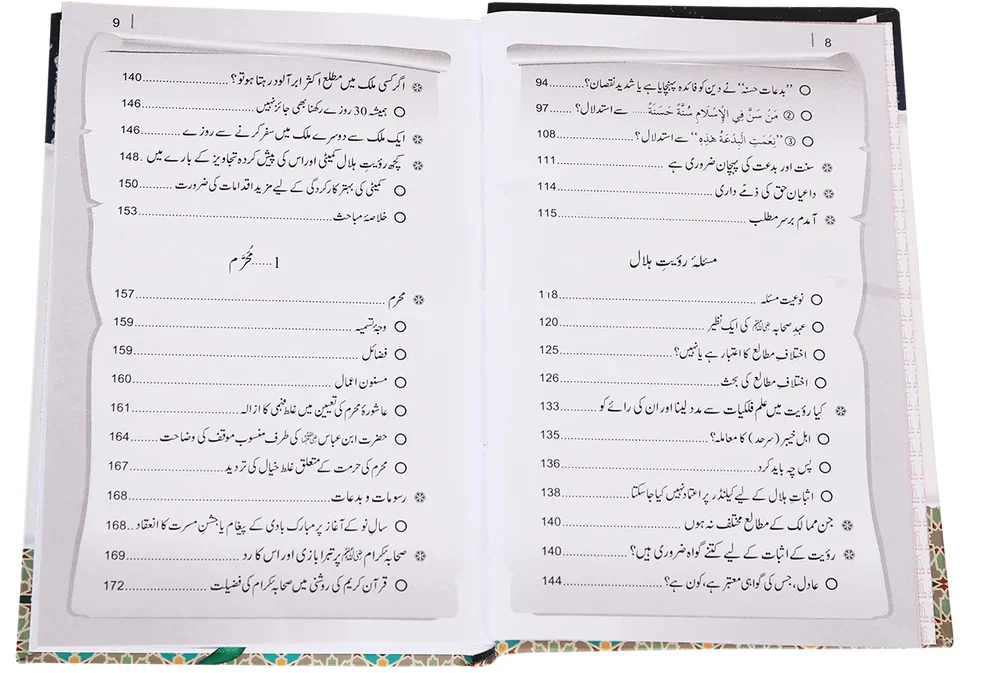 8
’’بدعات حسنہ‘‘ نے دین کو فائدہ پہنچایا ہے یا شدید نقصان؟ 94
② مَنْ سَنَّ فِي الْإِسْلَامِ سُنَّةً حَسَنَةً...... سے استدلال؟ 97
③ ’’نِعْمَتِ الْبِدْعَةُ هٰذِهِ‘‘ سے استدلال؟ 108
سنت اور بدعت کی پہچان ضروری ہے 111
داعیان حق کی ذمے داری 114
آمدم برسر مطلب 115
مسئلۂ رؤیتِ ہلال
نوعیت مسئلہ 118
عہدِ صحابہ رضی اللہ عنہم کی ایک نظیر 120
اختلاف مطالع کا اعتبار ہے یا نہیں؟ 125
اختلاف مطالع کی بحث 126
کیا رؤیت میں علم فلکیات سے مدد لینا اور ان کی رائے کو 133
اہل خیبر (سرحد) کا معاملہ؟ 135
پس چہ باید کرد 136
اثبات ہلال کے لیے کیلنڈر پر اعتماد نہیں کیا جا سکتا 138
جن ممالک کے مطالع مختلف نہ ہوں 140
رؤیت کے اثبات کے لیے کتنے گواہ ضروری ہیں؟ 140
عادل، جس کی گواہی معتبر ہے، کون ہے؟ 144
9
اگر کسی ملک میں مطلع اکثر ابر آلود رہتا ہو تو؟ 140
ہمیشہ 30 روزے رکھنا بھی جائز نہیں 146
ایک ملک سے دوسرے ملک میں سفر کرنے سے روزے 146
کچھ رؤیتِ ہلال کمیٹی اور اس کی پیش کردہ تجاویز کے بارے میں 148
کمیٹی کی بہتر کارکردگی کے لیے مزید اقدامات کی ضرورت 150
خلاصۂ مباحث 153
1......مُحَرَّم
محرم 157
وجۂ تسمیہ 159
فضائل 159
مسنون اعمال 160
عاشورۂ محرم کی تعیین میں غلط فہمی کا ازالہ 161
حضرت ابن عباس رضی اللہ عنہما کی طرف منسوب موقف کی وضاحت 164
محرم کی حرمت کے متعلق غلط خیال کی تردید 167
رسومات و بدعات 168
سالِ نو کے آغاز پر مبارک بادی کے پیغام یا جشنِ مسرت کا انعقاد 168
صحابۂ کرام رضی اللہ عنہم پر تبرا بازی اور اس کا رد 169
قرآن کریم کی روشنی میں صحابۂ کرام کی فضیلت 172